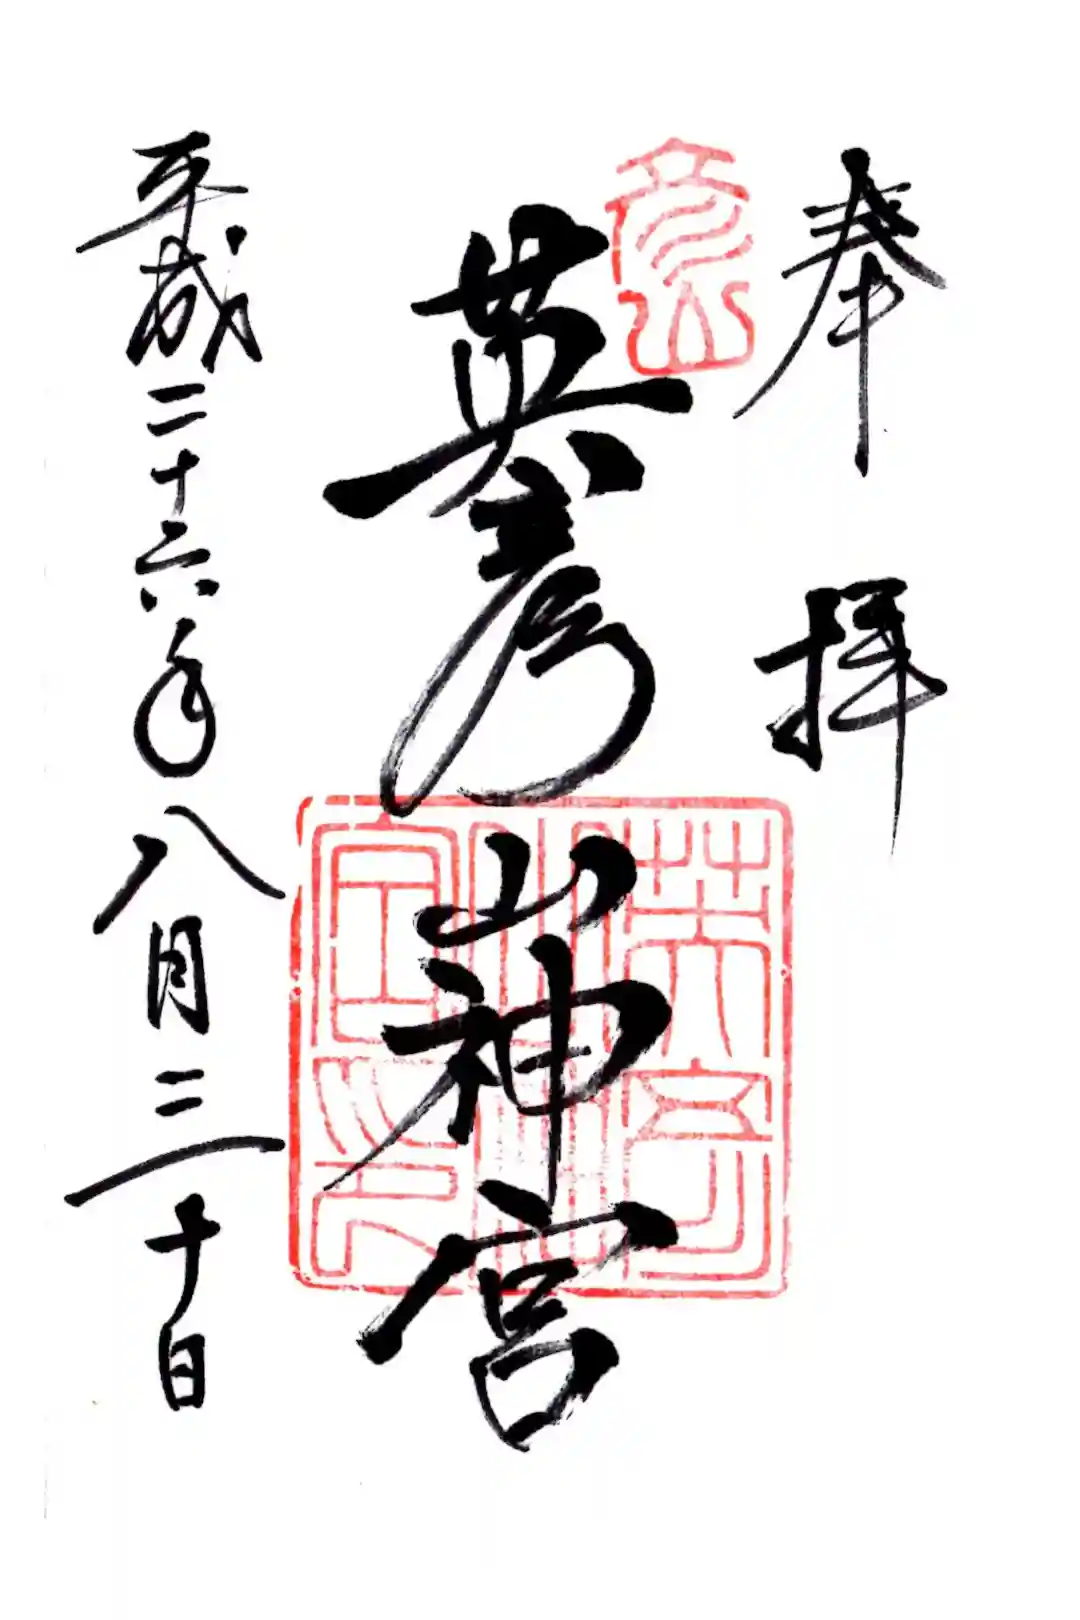 奉拝
彦山
英彦山神宮
英彦山神宮印
平成二十六年八月三十日